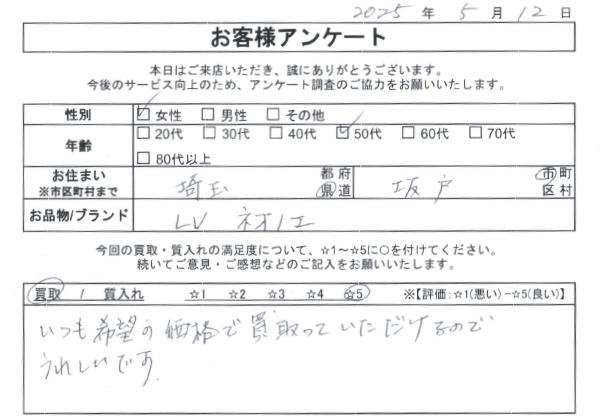 2025年 5月 12日
お客様アンケート
本日はご来店いただき、誠にありがとうございます。
今後のサービス向上のため、アンケート調査のご協力をお願いいたします。
性別 ☑女性 □男性 □その他
年齢 □20代 □30代 □40代 ☑50代 □60代 □70代
□80代以上
お住まい ※市区町村まで 埼玉 都府県道 坂戸 市町区村
お品物/ブランド LV ネオノエ
今回の買取・質入れの満足度について、☆1～☆5に○を付けてください。
続いてご意見・ご感想などのご記入をお願いいたします。
買取 / 質入れ ☆1 ☆2 ☆3 ☆4 ☆5 ※【評価:☆1(悪い)－☆5(良い)】
いつも希望の価格で買取っていただけるので
うれしいです。